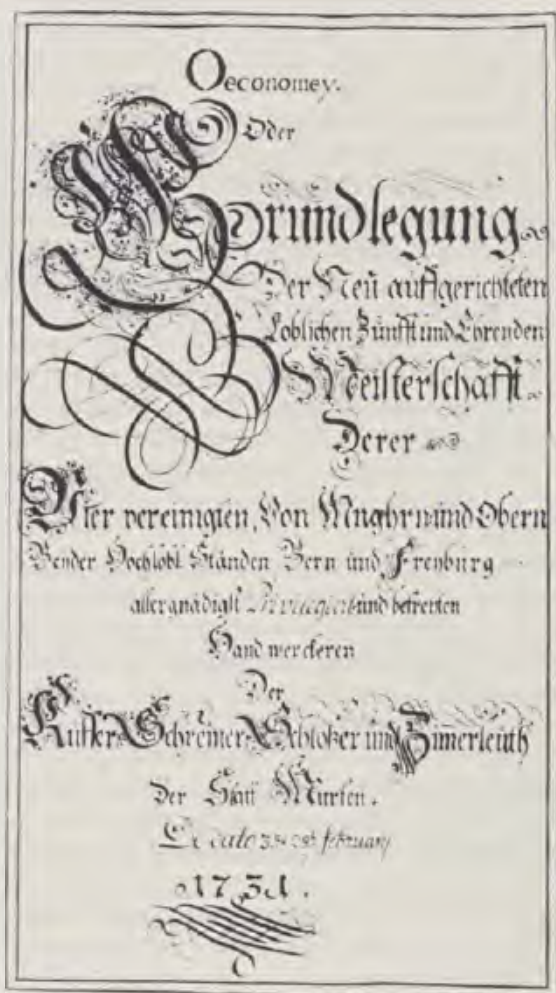 Oeconomey.
Oder
Grundlegung
Der Neü auffgerichteten
Loblichen Zunfft und Ehrenden
Meisterschafft
Derer
Vier vereinigten, Von Mnghrn und Obern
Beyder Hochlobl. Ständen Bern und Freyburg
allergnädigst und befreyten
Handwerckeren
Der
Küffer Schreiner Schloßer und Zimerleüth
Der Statt Murten.
De dato february
1731.